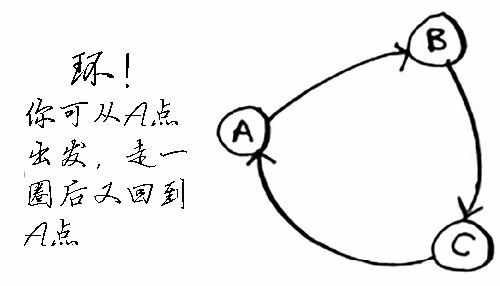 环!
你可从A点
出发,走一
圈后又回到
A点
B
A
C